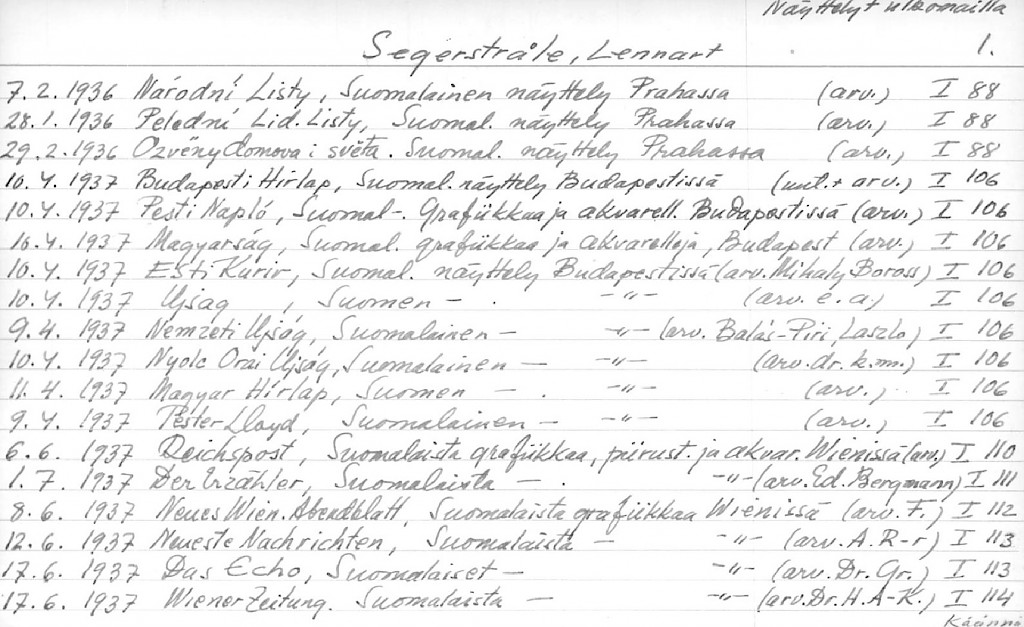 Näyttelyt ulkomailla
Segerstråle, Lennart 1.
7.2.1936 Národní Listy, Suomalainen näyttely Prahassa (arv.) I 88
28.1.1936 Polední Lid. Listy, Suomal. näyttely Prahassa (arv.) I 88
29.2.1936 Ozvěny domova i světa. Suomal. näyttely Prahassa (arv.) I 88
10.4.1937 Budapesti Hirlap, Suomal. näyttely Budapestissä (uut. + arv.) I 106
10.4.1937 Pesti Napló, Suomal-. Grafiikkaa ja akvarell. Budapestissä (arv.) I 106
16.4.1937 Magyarság, Suomal. grafiikkaa ja akvarelleja, Budapest (arv.) I 106
10.4.1937 Esti Kurir, Suomal. näyttely Budapestissä (arv. Mihaly Boross) I 106
10.4.1937 Ujsag, Suomen - . -"- (arv. e.a.) I 106
9.4.1937 Nemzeti Ujság, Suomalainen - -"- (arv. Balás-Piri, Laszlo) I 106
10.4.1937 Nyolc Orai Ujság, Suomalainen - -"- (arv. dr. k.m.) I 106
11.4.1937 Magyar Hírlap, Suomen - . -"- (arv.) I 106
9.4.1937 Pester Lloyd, Suomalainen - -"- (arv.) I 106
6.6.1937 Reichspost, Suomalaista grafiikkaa, piirust. ja akvar. Wienissä (arv.) I 110
1.7.1937 Der Erzähler, Suomalaista - . -"- (arv. Ed. Bergmann) I 111
8.6.1937 Neues Wien. Abendblatt, Suomalaista grafiikkaa Wienissä (arv. F.) I 112
12.6.1937 Neueste Nachrichten, Suomalaista - -"- (arv. A. R-r) I 113
17.6.1937 Das Echo, Suomalaiset - -"- (arv. Dr. Gr.) I 113
17.6.1937 Wiener Zeitung. Suomalaista - -"- (arv. Dr. H. A-K.) I 114
Käännä